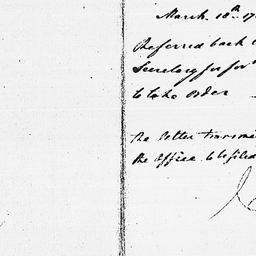 March 18th 17
Referred back
Secretary for
to take order
The letter
the office to be filed